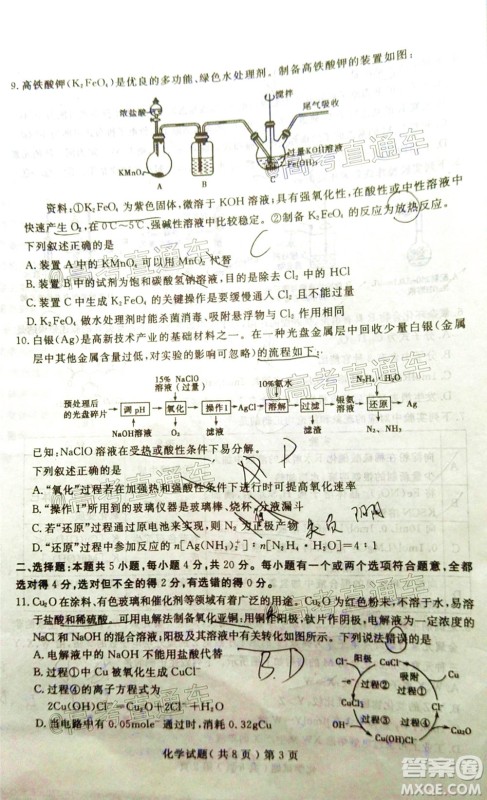 9.高铁酸钾(K₂FeO₄)是优良的多功能、绿色水处理剂。制备高铁酸钾的装置如图:
浓盐酸
搅拌
尾气吸收
过量KOH溶液
Fe(OH)₃
KMnO₄
A
B
C
资料:①K₂FeO₄为紫色固体,微溶于KOH溶液;具有强氧化性,在酸性或中性溶液中
快速产生O₂,在0℃~5℃、强碱性溶液中比较稳定。②制备K₂FeO₄的反应为放热反应。
下列叙述正确的是
C
A.装置A中的KMnO₄可以用MnO₂代替
B.装置B中的试剂为饱和碳酸氢钠溶液,目的是除去Cl₂中的HCl
C.装置C中生成K₂FeO₄的关键操作是要缓慢通入Cl₂且不能过量
D.K₂FeO₄做水处理剂时能杀菌消毒、吸附悬浮物与Cl₂作用相同
10.白银(Ag)是高新技术产业的基础材料之一。在一种光盘金属层中回收少量白银(金属
层中其他金属含量过低,对实验的影响可忽略)的流程如下:
15% NaClO
溶液(过量)
10%氨水
N₂H₄·H₂O
预处理后
的光盘碎片
调pH
氧化
操作Ⅰ
AgCl
溶解
过滤
银氨
溶液
还原
Ag
NaOH溶液
O₂
滤液
滤渣
N₂、NH₃
已知:NaClO溶液在受热或酸性条件下易分解。
下列叙述正确的是
D
A.“氧化”过程若在加强热和强酸性条件下进行可提高氧化速率
B.“操作Ⅰ”所用的玻璃仪器是玻璃棒、烧杯、分液漏斗
C.若“还原”过程通过原电池来实现,则N₂为正极产物
D.“还原”过程中参加反应的n[Ag(NH₃)₂⁺]:n[N₂H₄·H₂O]=4:1
二、选择题:本题共5小题,每小题4分,共20分。每小题有一个或两个选项符合题意,全都
选对得4分,选对但不全的得2分,有选错的得0分。
11.Cu₂O在涂料、有色玻璃和催化剂等领域有着广泛的用途。Cu₂O为红色粉末,不溶于水,易溶
于盐酸和稀硫酸。可用电解法制备氧化亚铜:用铜作阳极,钛片作阴极,电解液为一定浓度的
NaCl和NaOH的混合溶液,阳极及其溶液中有关转化如图所示。下列说法错误的是
BD
A.电解液中的NaOH不能用盐酸代替
B.过程①中Cu被氧化生成CuCl⁻
C.过程④的离子方程式为
2Cu(OH)Cl⁻=Cu₂O+2Cl⁻+H₂O
D.当电路中有0.05mole⁻通过时,消耗0.32gCu
Cl⁻
阳极
CuCl⁻
Cu
过程①
过程②
吸附
过程③
过程④
CuCl
OH⁻
Cu(OH)Cl⁻
Cu₂O
化学试题(共8页)第3页
高考直通车
答案圈
MXQE.COM